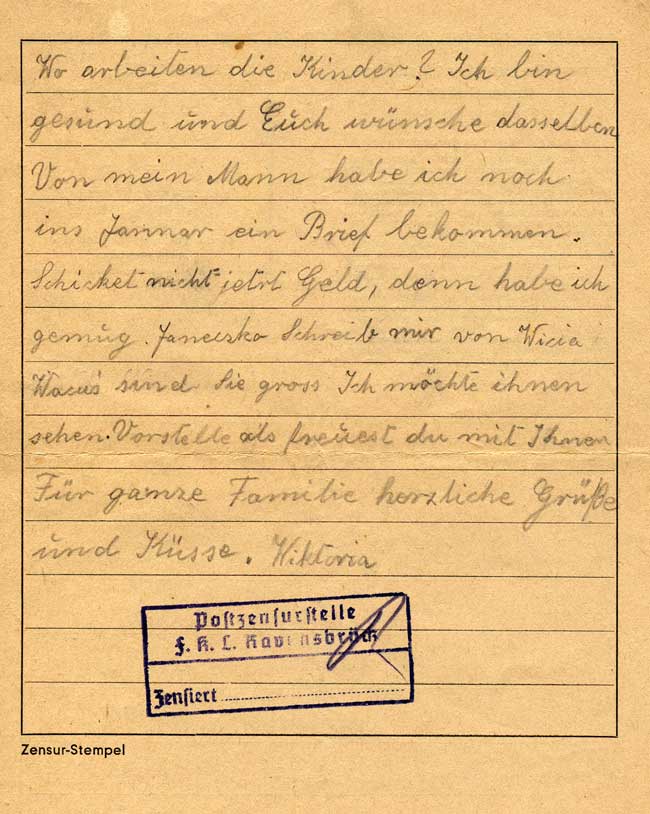 Wo arbeiten die Kinder? Ich bin
gesund und Euch wünsche dasselben
Von mein Mann habe ich noch
ins Jannar ein Brief bekommen.
Schicket nicht jetrt Geld, denn habe ich
genug. Janeczko Schreib mir von Wicia
Wacuś sind Sie gross Ich möchte ihnen
sehen. Vorstelle als freuest du mit Ihnen
Für ganze Familie herzliche Grüße
und Küsse. Wiktoria
Postzensurstelle
F. K. L. Ravensbrück
Zensiert
Zensur-Stempel